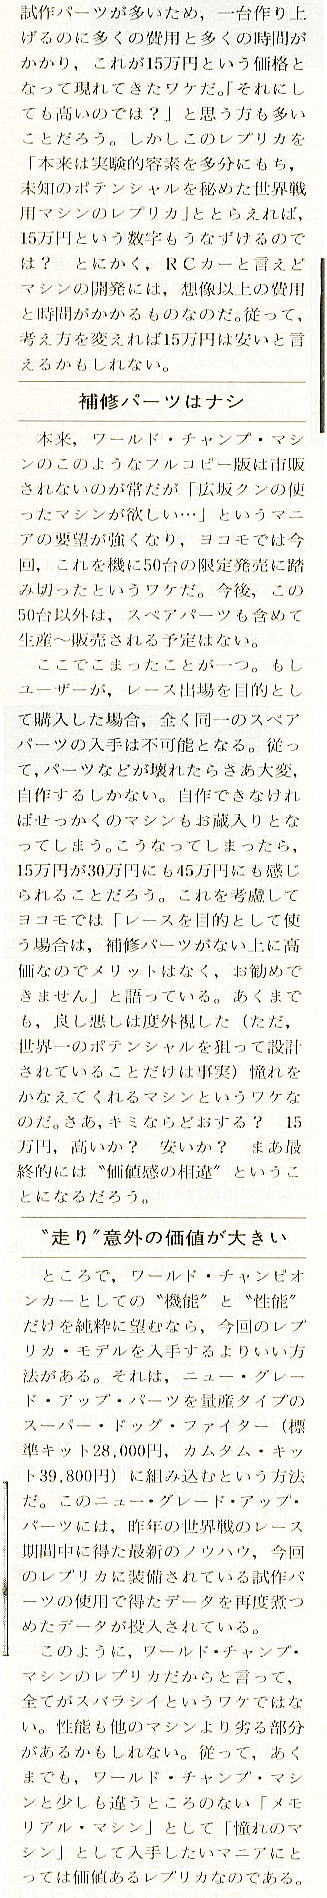 試作パーツが多いため，一台作り上
げるのに多くの費用と多くの時間が
かかり，これが15万円という価格と
なって現れてきたワケだ。「それにし
ても高いのでは？」と思う方も多い
ことだろう。しかしこのレプリカを
「本来は実験的容素を多分にもち，
未知のポテンシャルを秘めた世界戦
用マシンのレプリカ」ととらえれば，
15万円という数字もうなずけるので
は？　とにかく，ＲＣカーと言えど
マシンの開発には，想像以上の費用
と時間がかかるものなのだ。従って，
考え方を変えれば15万円は安いと言
えるかもしれない。
補修パーツはナシ
本来，ワールド・チャンプ・マシ
ンのこのようなフルコピー版は市販
されないのが常だが「広坂クンの使
ったマシンが欲しい…」というマニ
アの要望が強くなり，ヨコモでは今
回，これを機に50台の限定発売に踏
み切ったというワケだ。今後，この
50台以外は，スペアパーツも含めて
生産〜販売される予定はない。
ここでこまったことが一つ。もし
ユーザーが，レース出場を目的とし
て購入した場合，全く同一のスペア
パーツの入手は不可能となる。従っ
て，パーツなどが壊れたらさあ大変，
自作するしかない。自作できなけれ
ばせっかくのマシンもお蔵入りとな
ってしまう。こうなってしまったら，
15万円が30万円にも45万円にも感じ
られることだろう。これを考慮して
ヨコモでは「レースを目的として使
う場合は，補修パーツがない上に高
価なのでメリットはなく，お勧めで
きません」と語っている。あくまで
も，良し悪しは度外視した（ただ，
世界一のポテンシャルを狙って設計
されていることだけは事実）憧れを
かなえてくれるマシンというワケな
のだ。さあ，キミならどおする？　15
万円，高いか？　安いか？　まあ最
終的には〝価値感の相違〞というこ
とになるだろう。
〝走り〞意外の価値が大きい
ところで，ワールド・チャンピオ
ンカーとしての〝機能〞と〝性能〞
だけを純粋に望むなら，今回のレプ
リカ・モデルを入手するよりいい方
法がある。それは，ニュー・グレー
ド・アップ・パーツを量産タイプの
スーパー・ドッグ・ファイター（標
準キット28,000円，カムタム・キッ
ト39,800円）に組み込むという方法
だ。このニュー・グレード・アップ・
パーツには，昨年の世界戦のレース
期間中に得た最新のノウハウ，今回
のレプリカに装備されている試作パ
ーツの使用で得たデータを再度煮つ
めたデータが投入されている。
このように，ワールド・チャンプ・
マシンのレプリカだからと言って，
全てがスバラシイというワケではな
い。性能も他のマシンより劣る部分
があるかもしれない。従って，あく
までも，ワールド・チャンプ・マシ
ンと少しも違うところのない「メモ
リアル・マシン」として「憧れのマ
シン」として入手したいマニアにと
っては価値あるレプリカなのである。